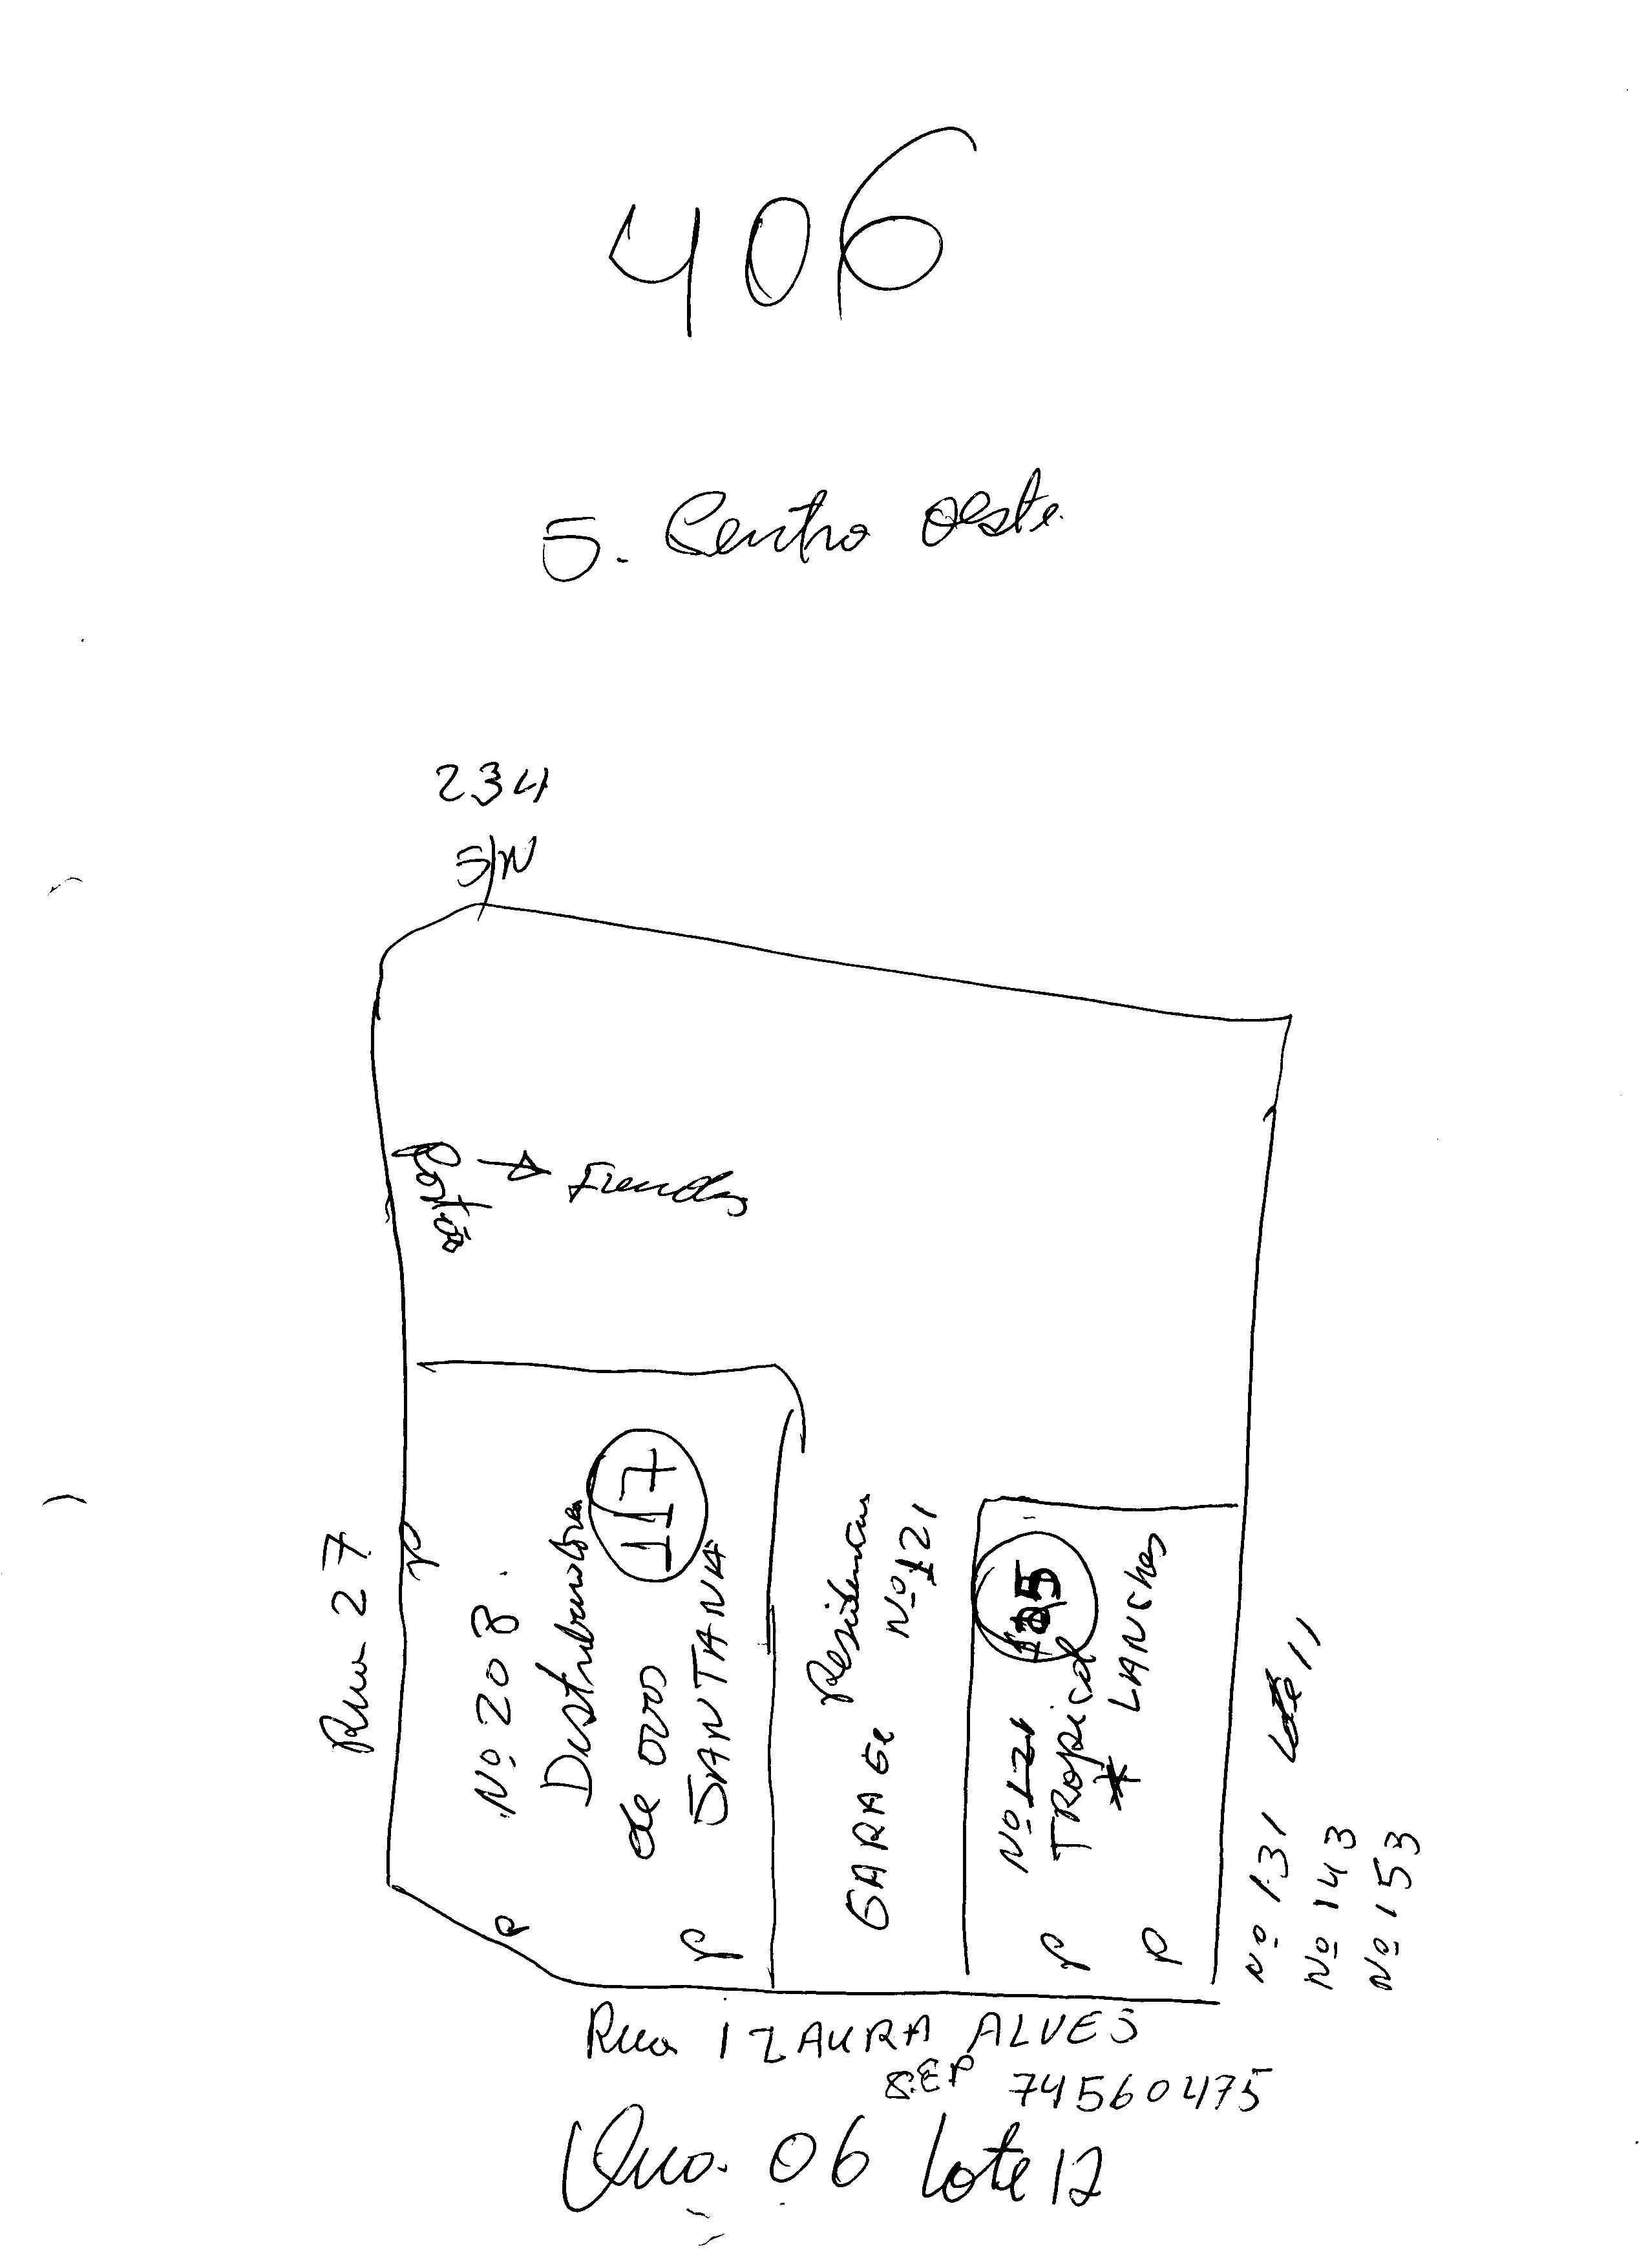 406
5. Centro oeste
234
S/N
Portão → Fundos
Rua 27
P
Nº 208.
Destribuidora
de ovos
SANTANA
117
P
P
GARAGE Residencias
Nº 121
Nº 121
125
TROPical
* LANches
P
P
Nº 131 Lote 11
Nº 143
Nº 153
Rua IZAURA ALVES
CEP 74560475
Qua. 06 Lote 12